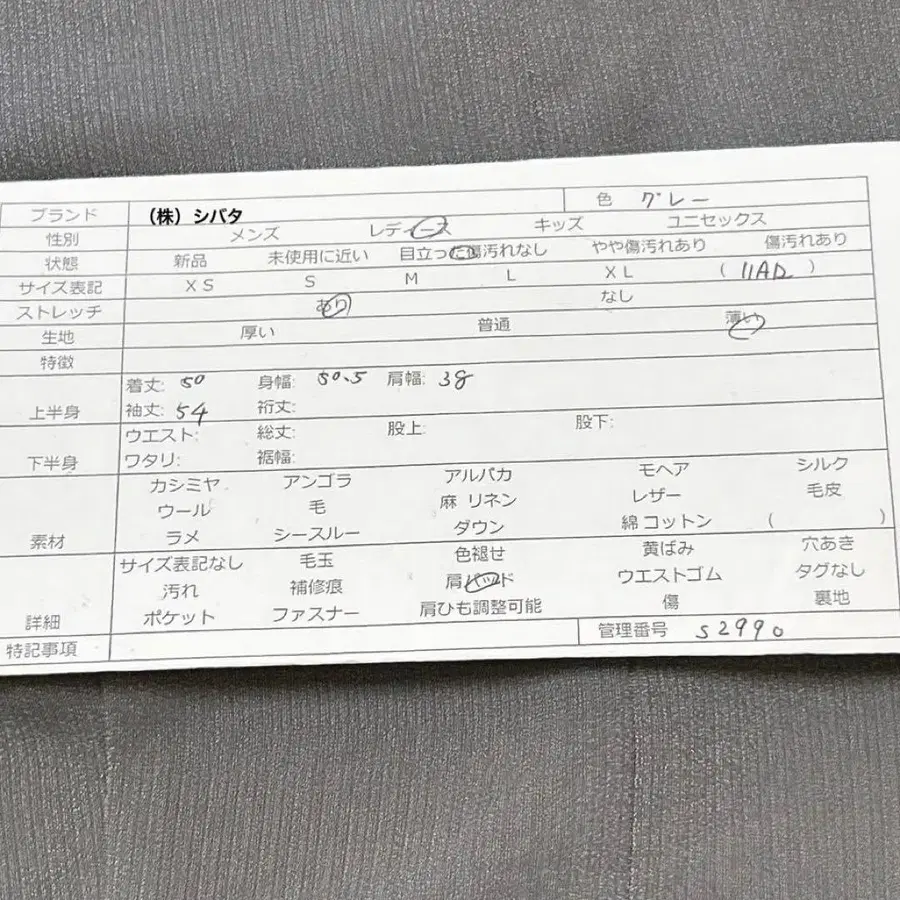 ブランド （株）シバタ 色 グレー
性別 メンズ レディース キッズ ユニセックス
状態 新品 未使用に近い 目立った傷汚れなし やや傷汚れあり 傷汚れあり
サイズ表記 XS S M L XL ( 11AR )
ストレッチ あり なし
生地 厚い 普通 薄い
特徴
上半身 着丈: 50 身幅: 50.5 肩幅: 38
袖丈: 54 裄丈:
下半身 ウエスト: 総丈: 股上: 股下:
ワタリ: 裾幅:
素材 カシミヤ アンゴラ アルパカ モヘア シルク
ウール 毛 麻 リネン レザー 毛皮
ラメ シースルー ダウン 綿 コットン ( )
詳細 サイズ表記なし 毛玉 色褪せ 黄ばみ 穴あき
汚れ 補修痕 肩パッド ウエストゴム タグなし
ポケット ファスナー 肩ひも調整可能 傷 裏地
特記事項 管理番号 S2990